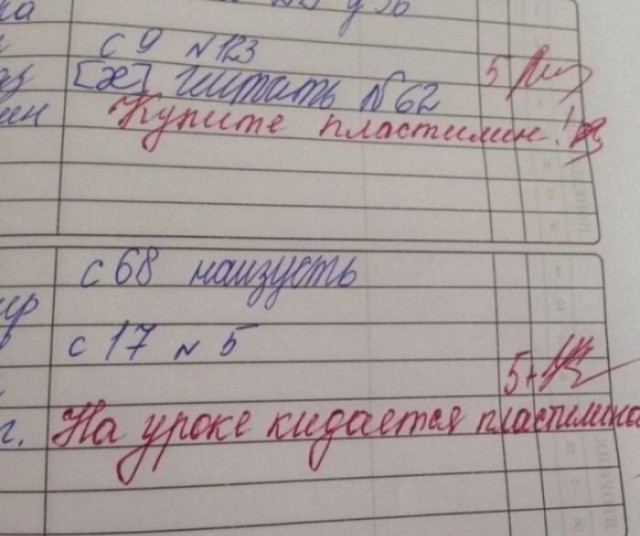 с 9 №123
[ж] читать №62
5
Купите пластилин!
с 68 наизусть
с 17 № 5
5+
На уроке кидается пластилином